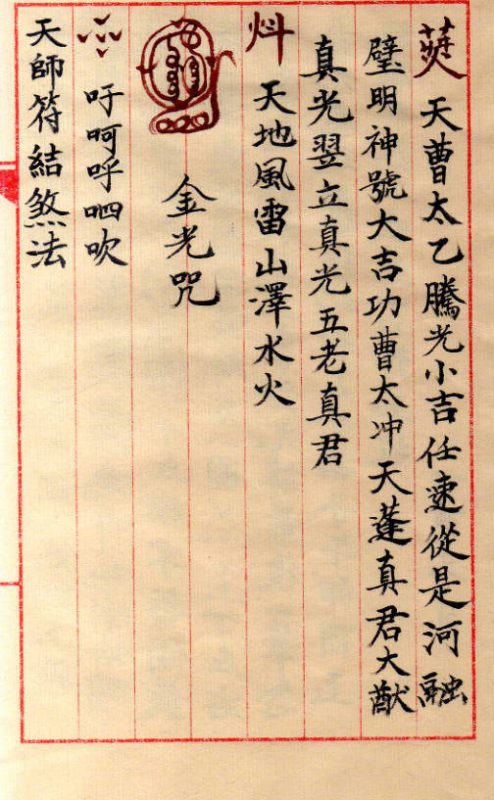 天曹太乙騰光小吉任速從是河融
璧明神號大吉功曹太冲天蓬真君大猷
真光翌立真光五老真君
天地風雷山澤水火
金光咒
吁呵呼呬吹
天師符結煞法